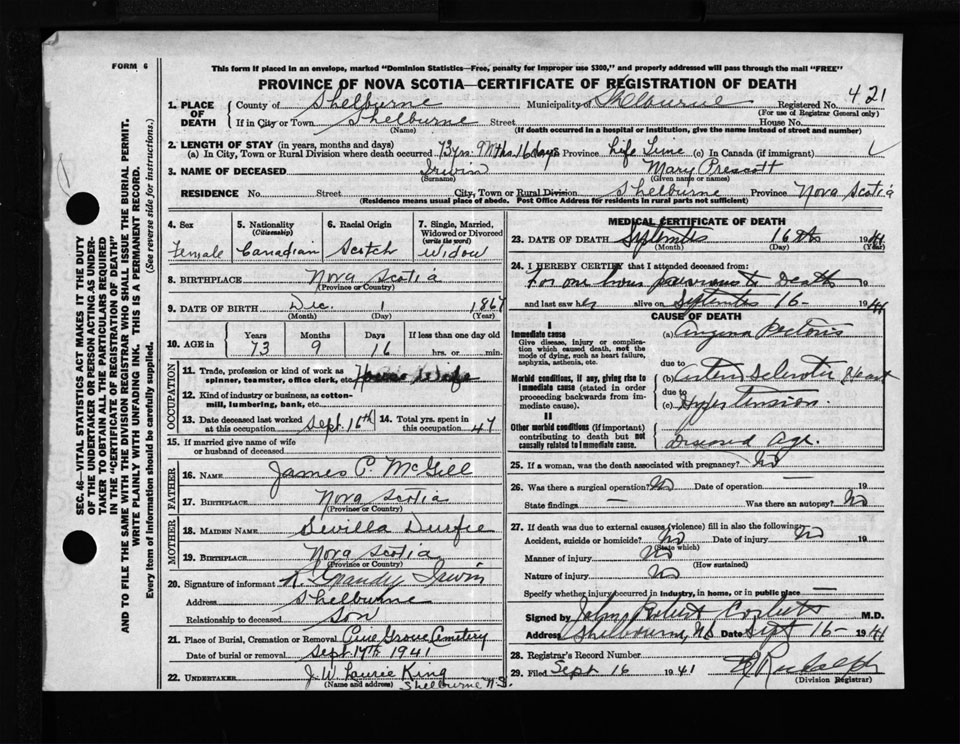 FORM 6
This form if placed in an envelope, marked "Dominion Statistics—Free, penalty for improper use $300," and properly addressed will pass through the mail "FREE"
PROVINCE OF NOVA SCOTIA—CERTIFICATE OF REGISTRATION OF DEATH
SEC. 46—VITAL STATISTICS ACT MAKES IT THE DUTY
OF THE UNDERTAKER OR PERSON ACTING AS UNDER-
TAKER TO OBTAIN ALL THE PARTICULARS REQUIRED
IN THE "CERTIFICATE OF REGISTRATION OF DEATH"
AND TO FILE THE SAME WITH THE DIVISION REGISTRAR WHO SHALL ISSUE THE BURIAL PERMIT.
WRITE PLAINLY WITH UNFADING INK. THIS IS A PERMANENT RECORD.
Every item of information should be carefully supplied. (See reverse side for instructions.)
1. PLACE OF DEATH County of Shelburne Municipality of Shelburne Registered No. 421
(For use of Registrar General only)
If in City or Town Shelburne Street House No.
(Name) (If death occurred in a hospital or institution, give the name instead of street and number)
2. LENGTH OF STAY (in years, months and days)
(a) In City, Town or Rural Division where death occurred 73 yrs. 9 Mths. 16 days Province Life Time (c) In Canada (if immigrant)
3. NAME OF DECEASED Irwin Mary Prescott
(Surname) (Given name or names)
RESIDENCE No. Street City, Town or Rural Division Shelburne Province Nova Scotia
(Residence means usual place of abode. Post Office Address for residents in rural parts not sufficient)
4. Sex Female
5. Nationality (Citizenship) Canadian
6. Racial Origin Scotch
7. Single, Married, Widowed or Divorced (write the word) Widow
8. BIRTHPLACE Nova Scotia
(Province or Country)
9. DATE OF BIRTH Dec. 1 1867
(Month) (Day) (Year)
10. AGE in Years Months Days If less than one day old
73 9 16 hrs. or min.
OCCUPATION
11. Trade, profession or kind of work as
spinner, teamster, office clerk, etc. House Wife
12. Kind of industry or business, as cotton-
mill, lumbering, bank, etc.
13. Date deceased last worked at this occupation Sept. 16th
14. Total yrs. spent in this occupation 47
15. If married give name of wife
or husband of deceased
FATHER
16. NAME James P. McGill
17. BIRTHPLACE Nova Scotia
(Province or Country)
MOTHER
18. MAIDEN NAME Sevilla Durfie
19. BIRTHPLACE Nova Scotia
(Province or Country)
20. Signature of informant Grandy Irwin
Address Shelburne
Relationship to deceased Son
21. Place of Burial, Cremation or Removal Pine Grove Cemetery
Date of burial or removal Sept. 17th 1941
22. UNDERTAKER J. W. Laurie King
(Name and address) Shelburne N.S.
MEDICAL CERTIFICATE OF DEATH
23. DATE OF DEATH September 16th 1941
(Month) (Day) (Year)
24. I HEREBY CERTIFY that I attended deceased from:
For one hour previous to Death 19
and last saw her alive on September 16- 1941
CAUSE OF DEATH
I
Immediate cause
Give disease, injury or complica-
tion which caused death, not the
mode of dying, such as heart failure,
asphyxia, asthenia, etc.
(a) Angina Pectoris
due to
Morbid conditions, if any, giving rise to
immediate cause (stated in order
proceeding backwards from im-
mediate cause).
(b) Arterio Sclerotic Heart
due to
(c) Hypertension.
II
Other morbid conditions (if important)
contributing to death but not
causally related to immediate cause.
Age.
25. If a woman, was the death associated with pregnancy? No
26. Was there a surgical operation? No Date of operation — 19
State findings — Was there an autopsy? No
27. If death was due to external causes (violence) fill in also the following:
Accident, suicide or homicide? No Date of injury No 19
(State which)
Manner of injury No
(How sustained)
Nature of injury No
Specify whether injury occurred in industry, in home, or in public place —
Signed by John Robert Corbett M.D.
Address Shelbourne, N.S. Date Sept 16- 1941
28. Registrar's Record Number
29. Filed Sept. 16 1941 Rudolph
(Division Registrar)